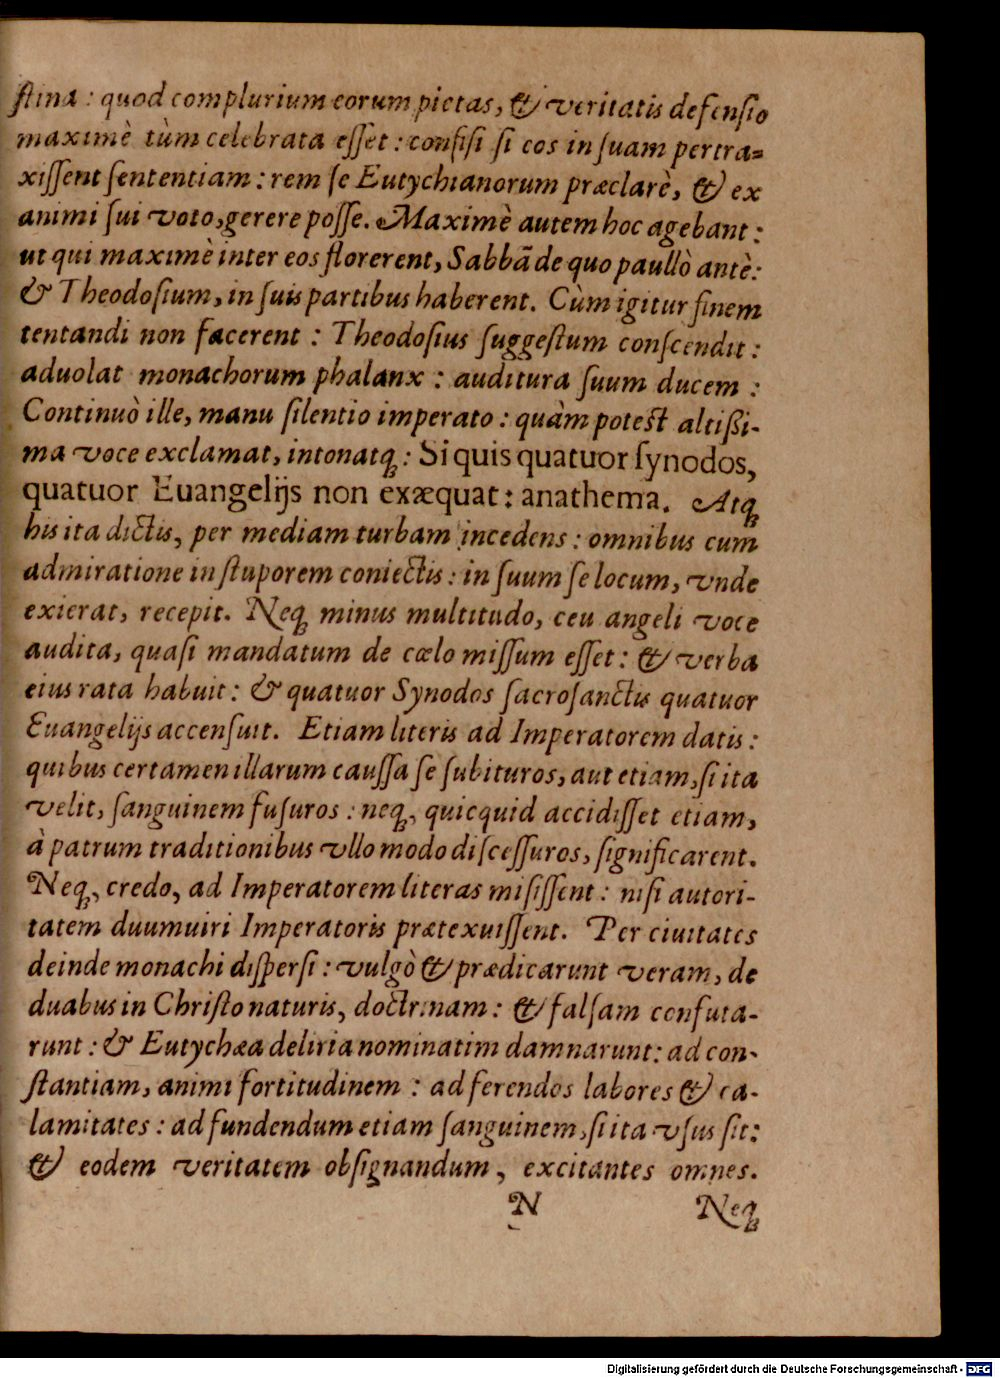 stina: quod complurium eorum pietas, & veritatis defensio
maximè tùm celebrata esset: confisi si eos in suam pertra-
xissent sententiam: rem se Eutychianorum præclarè, & ex
animi sui voto, gerere posse. Maximè autem hoc agebant:
ut qui maximè inter eos florerent, Sabbā de quo paullò antè:
& Theodosium, in suis partibus haberent. Cùm igitur finem
tentandi non facerent: Theodosius suggestum conscendit:
aduolat monachorum phalanx: auditura suum ducem:
Continuò ille, manu silentio imperato: quàm potest altißi-
ma voce exclamat, intonatq;: Si quis quatuor synodos,
quatuor Euangelijs non exæquat: anathema. Atq;
his ita dictis, per mediam turbam incedens: omnibus cum
admiratione in stuporem coniectis: in suum se locum, vnde
exierat, recepit. Neq; minus multitudo, ceu angeli voce
audita, quasi mandatum de cœlo missum esset: & verba
eius rata habuit: & quatuor Synodos sacrosanctis quatuor
Euangelijs accensuit. Etiam literis ad Imperatorem datis:
quibus certamen illarum caussa se subituros, aut etiam, si ita
velit, sanguinem fusuros: neq;, quicquid accidisset etiam,
à patrum traditionibus vllo modo discessuros, significarent.
Neq;, credo, ad Imperatorem literas misissent: nisi autori-
tatem duumuiri Imperatoris prætexuissent. Per ciuitates
deinde monachi dispersi: vulgò & prædicarunt veram, de
duabus in Christo naturis, doctrinam: & falsam confuta-
runt: & Eutychæa deliria nominatim damnarunt: ad con-
stantiam, animi fortitudinem: ad ferendos labores & ca-
lamitates: ad fundendum etiam sanguinem, si ita vsus sit:
& eodem veritatem obsignandum, excitantes omnes.
N Neq;
Digitalisierung gefördert durch die Deutsche Forschungsgemeinschaft - DFG